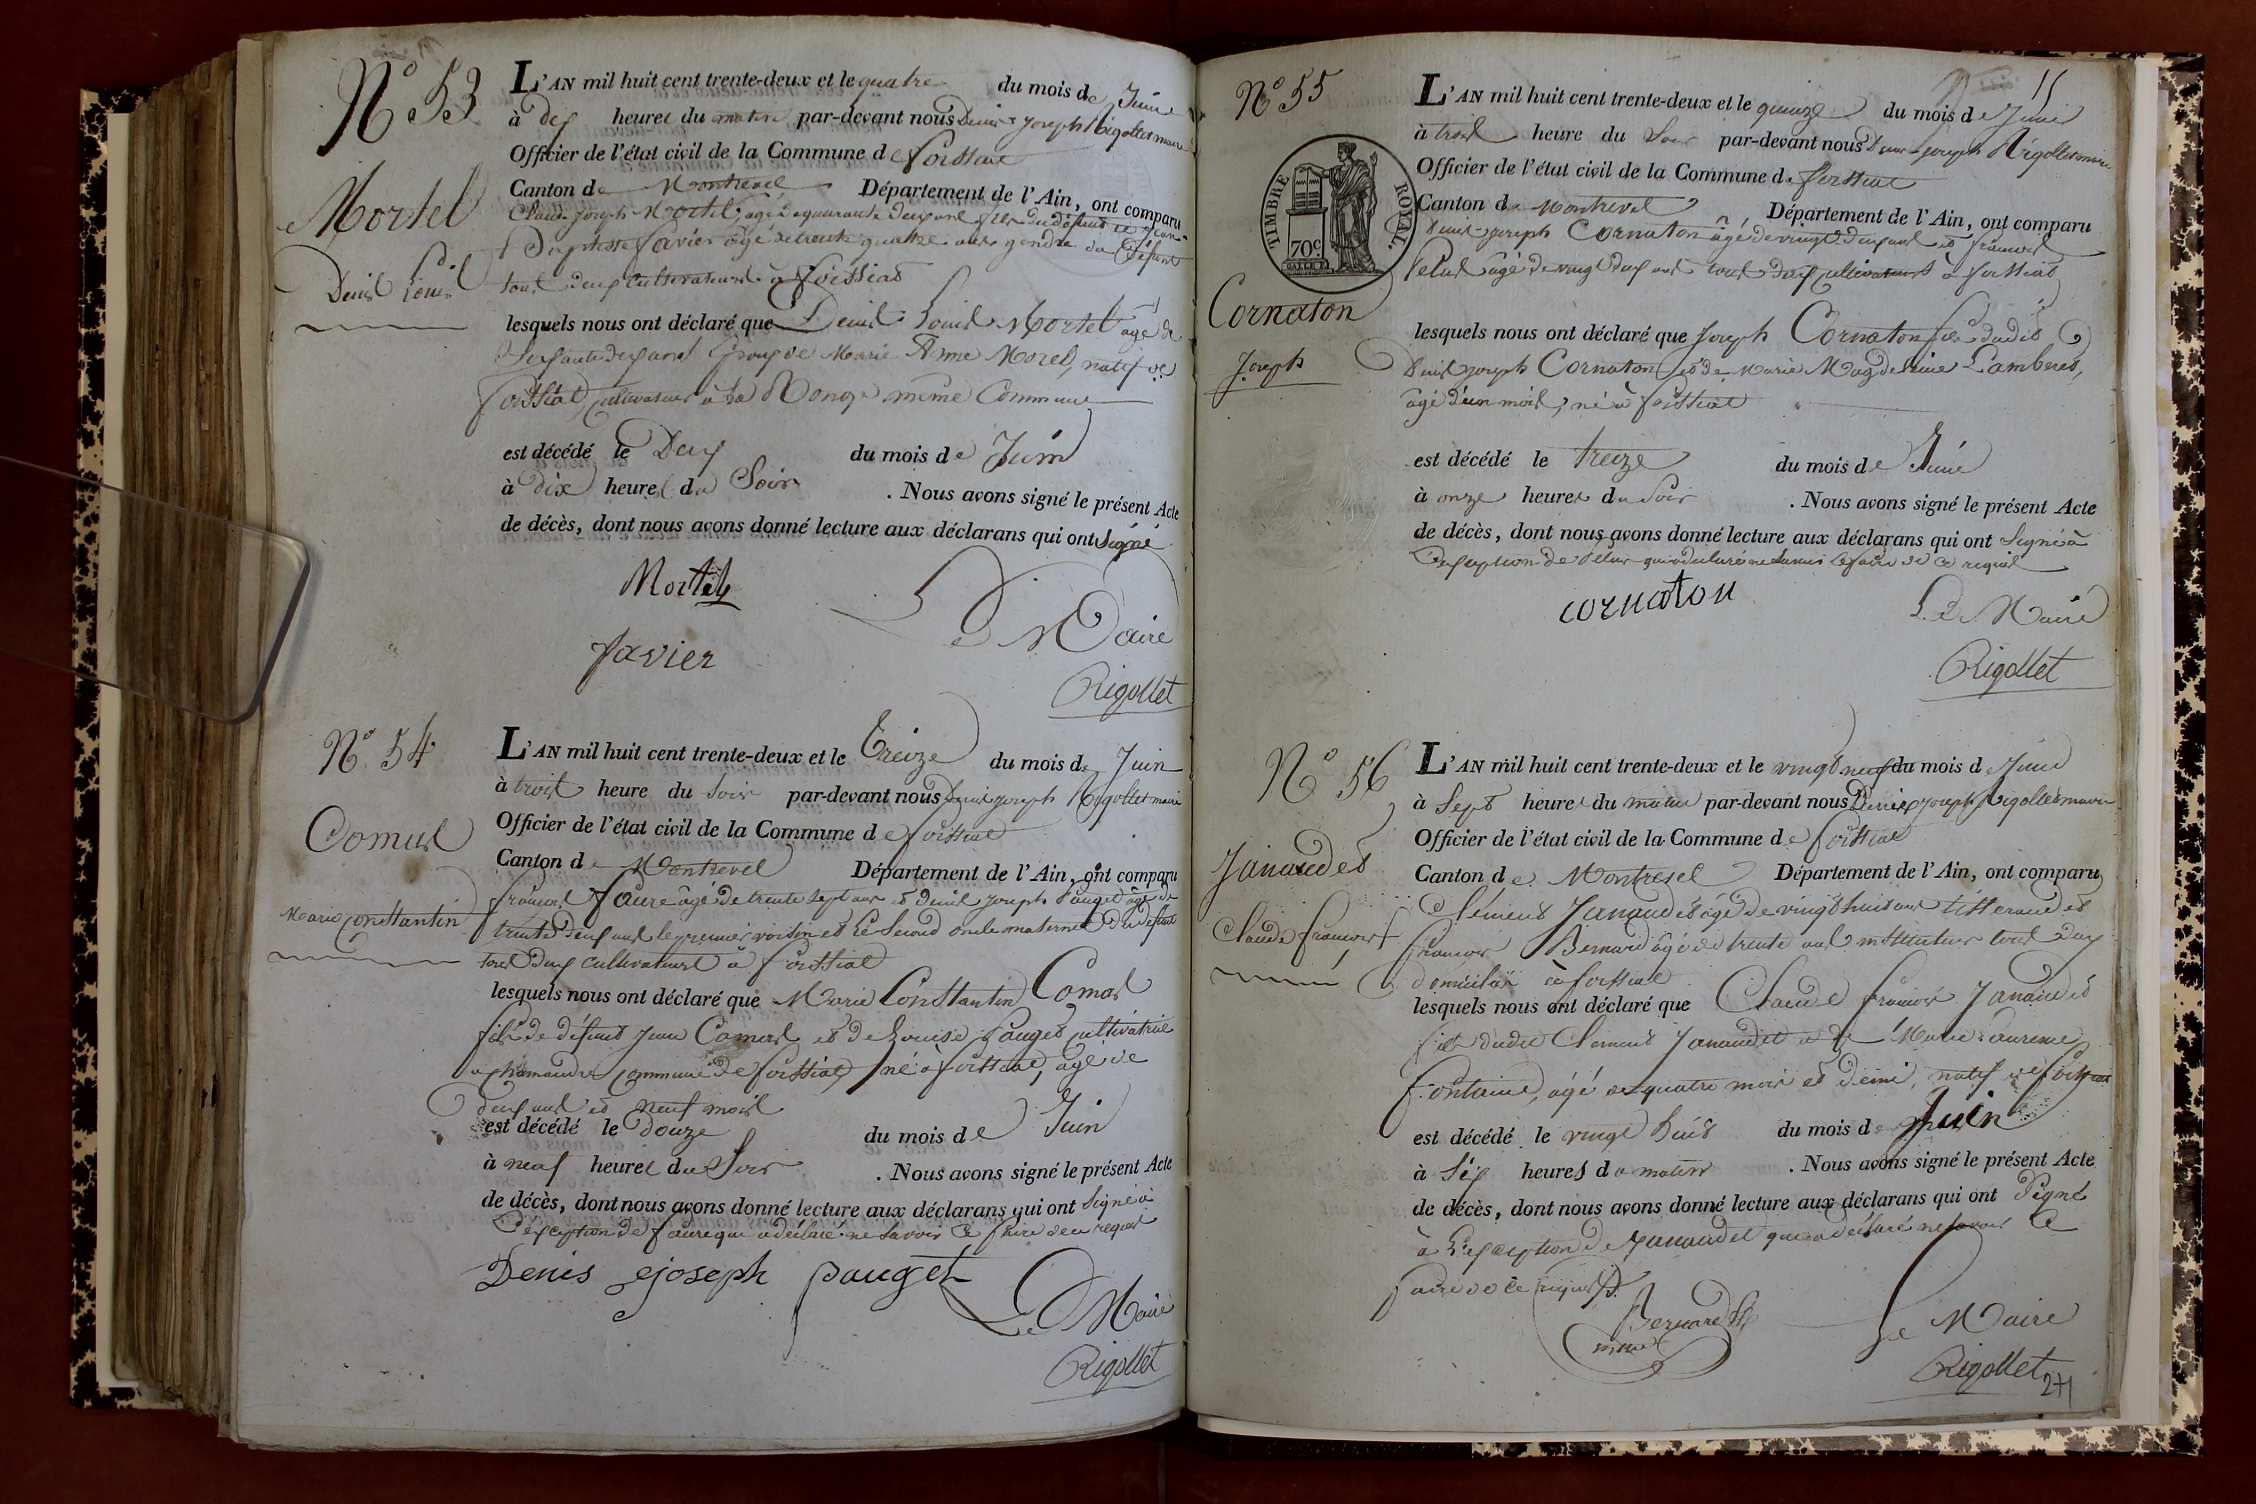 N° 53
Mortel
Denis Louis
L'AN mil huit cent trente-deux et le quatre du mois de Juin
à dix heures du matin par-devant nous Denis Joseph Rigollet maire
Officier de l'état civil de la Commune de foissiat
Canton de Montrevel Département de l'Ain, ont comparu
Claude Joseph Mortel, agé de quarante deux ans fils du défunt et Jean
Baptiste favier âgé de trente quatre ans gendre du défunt
tous deux cultivateurs à foissiat
lesquels nous ont déclaré que Denis Louis Mortel agé de
ans Epoux de Marie Anne Morel, natif de
foissiat, cultivateur à la même Commune
est décédé le Deux du mois de Juin
à dix heures du Soir . Nous avons signé le présent Acte
de décès, dont nous avons donné lecture aux déclarans qui ont signé
Mortel
favier
Le Maire
Rigollet
N° 54
Comas
Marie Constantin
L'AN mil huit cent trente-deux et le treize du mois de Juin
à trois heure du soir par-devant nous Denis Joseph Rigollet maire
Officier de l'état civil de la Commune de foissiat
Canton de Montrevel Département de l'Ain, ont comparu
françois faure âgé de trente sept ans et Denis Joseph Pauget âgé de
trente deux ans le premier voisin et le second oncle maternel du défunt
tous deux cultivateurs à foissiat
lesquels nous ont déclaré que Marie Constantin Comas
fils de défunt Jean Comas et de Louise Pauget cultivatrice
commune de foissiat, né à foissiat, agé de
deux ans et neuf mois
est décédé le douze du mois de Juin
à neuf heures du Soir . Nous avons signé le présent Acte
de décès, dont nous avons donné lecture aux déclarans qui ont signé à
l'exception de faure qui a déclaré ne savoir le faire de ce requis
Denis joseph pauget
Le Maire
Rigollet
N° 55
TIMBRE ROYAL.
70c
Cornaton
Joseph
L'AN mil huit cent trente-deux et le quinze du mois de Juin
à trois heure du Soir par-devant nous Denis Joseph Rigollet maire
Officier de l'état civil de la Commune de foissiat
Canton de Montrevel Département de l'Ain, ont comparu
Denis Joseph Cornaton âgé de vingt deux ans et françois
Pelus âgé de vingt deux ans tous deux cultivateurs à foissiat
lesquels nous ont déclaré que Joseph Cornaton fils dudit
Denis Joseph Cornaton et de Marie Magdeleine Lambert,
âgé d'un mois, né à foissiat
est décédé le treize du mois de Juin
à onze heures du Soir . Nous avons signé le présent Acte
de décès, dont nous avons donné lecture aux déclarans qui ont signé à
l'exception de Pelus qui a déclaré ne savoir le faire de ce requis
cornaton
Le Maire
Rigollet
N° 56
Janaudet
Claude françois
L'AN mil huit cent trente-deux et le vingt neuf du mois de Juin
à sept heures du matin par-devant nous Denis Joseph Rigollet maire
Officier de l'état civil de la Commune de foissiat
Canton de Montrevel Département de l'Ain, ont comparu
Clément Janaudet âgé de vingt huit ans tisserand et
françois Bernard âgé de trente ans instituteur tous deux
domiciliés à foissiat
lesquels nous ont déclaré que Claude françois Janaudet
fils dudit Clement Janaudet et de Marie Laurence
fontaine, âgé de quatre mois et demi, natif de foissiat
est décédé le vingt huit du mois de Juin
à six heures du matin . Nous avons signé le présent Acte
de décès, dont nous avons donné lecture aux déclarans qui ont signé
à l'exception de Janaudet qui a déclaré ne savoir le
faire de ce requis
Bernard
Le Maire
Rigollet
241